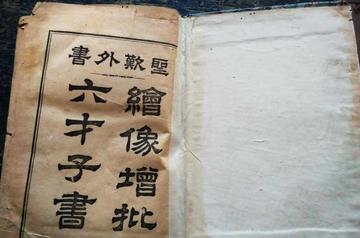 聖歎外書
繪像增批
六才子書